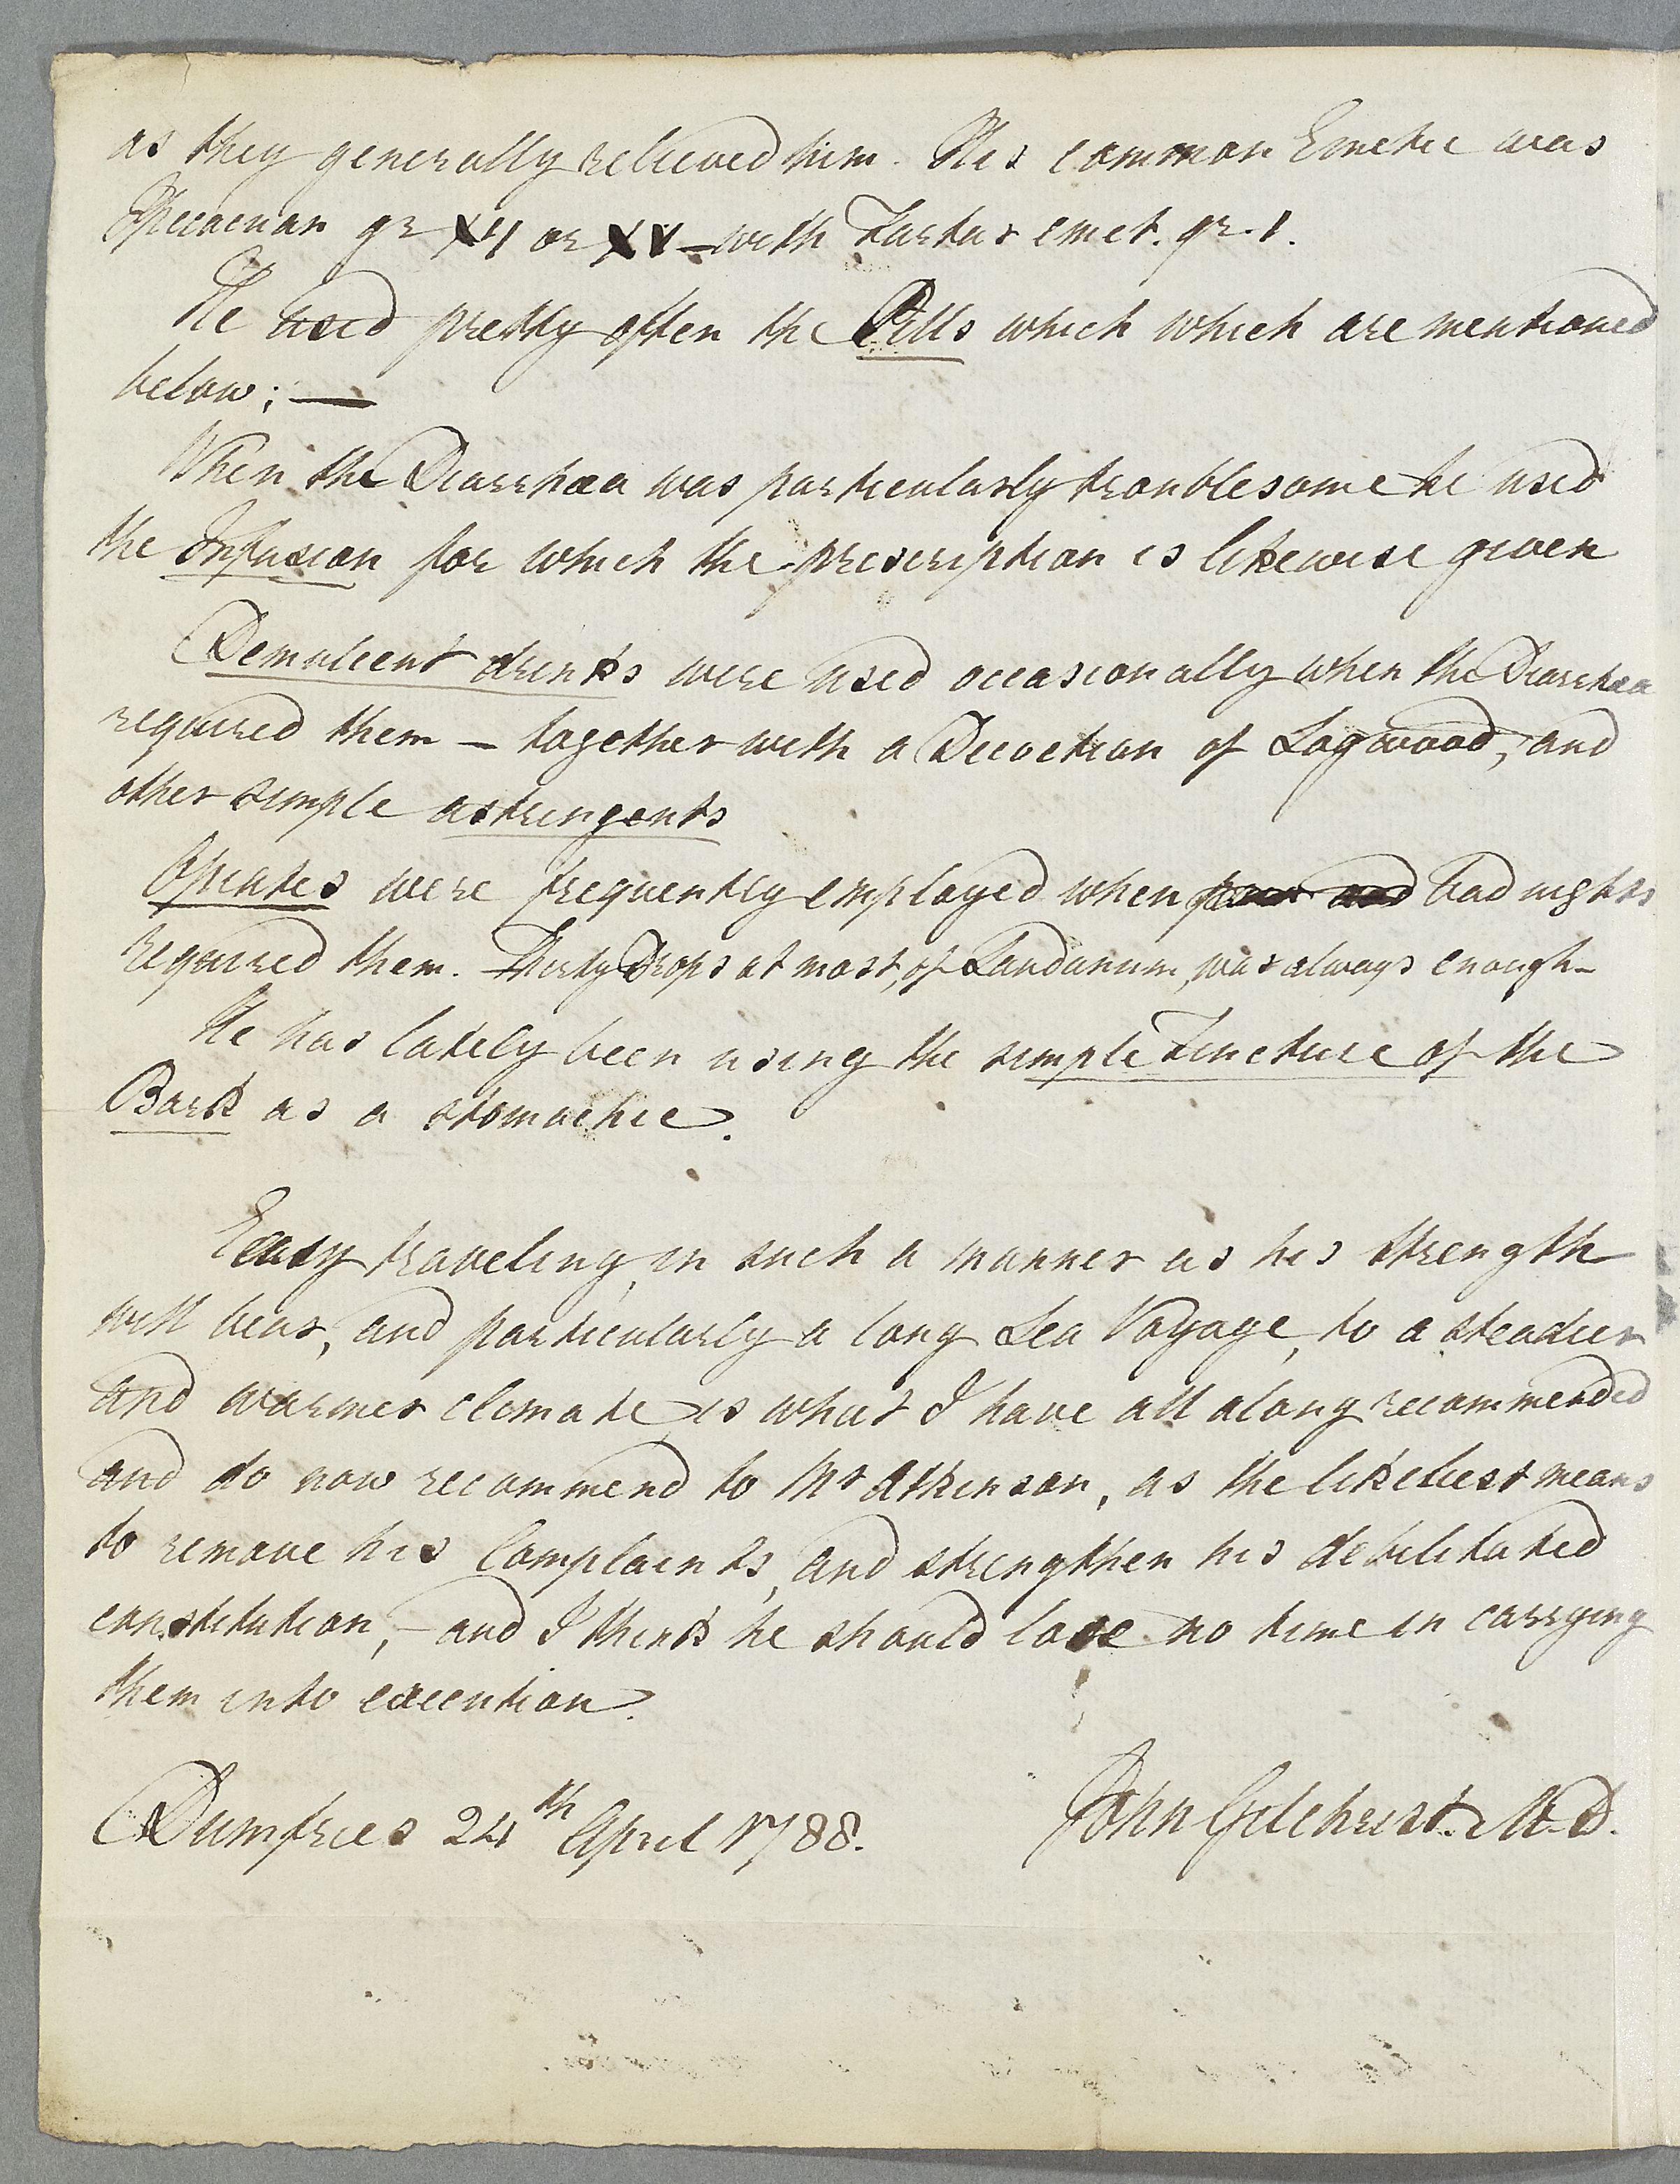 as they generally relieved him. His common Emetic was
Ipecacuan gr XII or XV – with Tartar emet. gr. I.
He used pretty often the Pills which which are mentioned
below; —
When the Diarrhœa was particularly troublesome he used
the Infusion for which the prescription is likewise given
Demulcent drinks were used occasionally when the Diarrhœa
required them – together with a Decoction of Logwood, and
other simple astringents
Opiates were frequently employed when bad nights
required them. Thirty Drops at most, of Laudanum, was always enough –
He has lately been using the simple Tincture of the
Bark as a stomachic.
Easy traveling, in such a manner as his strength
will bear, and particularly a long Sea Voyage, to a steadier
and warmer climate, is what I have all along recommended
and do now recommend to Mr Atkinson, as the likeliest means
to remove his Complaints, and strengthen his debilitated
constitution, – and I think he should lose no time in carrying
them into execution.
Dumfries 24th April 1788. John Gilchrist. M.D.